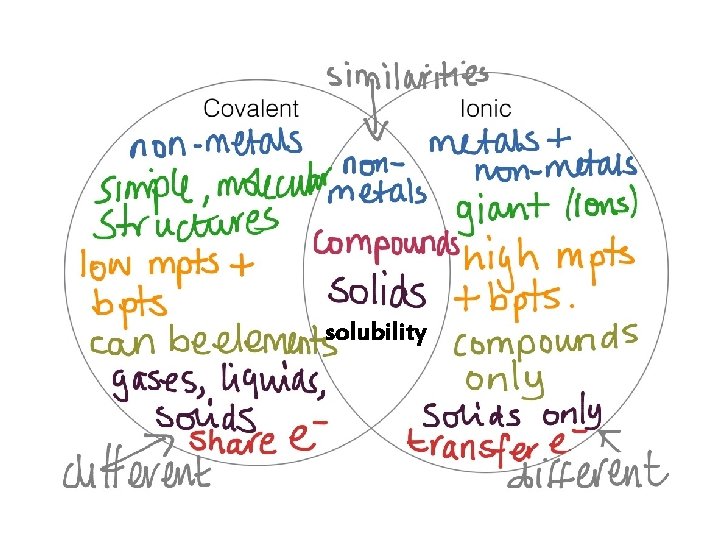 similarities
Covalent
non-metals
simple, molecular
structures
low mpts +
bpts
can be elements
gases, liquids,
solids
share e⁻
different
non-
metals
compounds
solids
solubility
Ionic
metals +
non-metals
giant (ions)
high mpts
+ bpts.
compounds
only
solids only
transfer e⁻
different